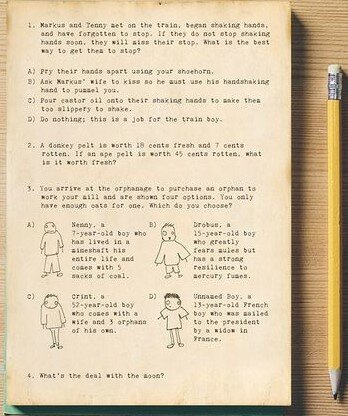 1. Markus and Tenny met on the train, began shaking hands,
and have forgotten to stop. If they do not stop shaking
hands soon, they will miss their stop. What is the best
way to get them to stop?
A) Pry their hands apart using your shoehorn.
B) Ask Markus' wife to kiss so he must use his handshaking
hand to pummel you.
C) Pour castor oil onto their shaking hands to make them
too slippery to shake.
D) Do nothing; this is a job for the train boy.
2. A donkey pelt is worth 18 cents fresh and 7 cents
rotten. If an ape pelt is worth 45 cents rotten, what
is it worth fresh?
3. You arrive at the orphanage to purchase an orphan to
work your mill and are shown four options. You only
have enough oats for one. Which do you choose?
A) Nenny, a
7-year-old boy who
has lived in a
mineshaft his
entire life and
comes with 5
sacks of coal.
B) Drobus, a
15-year-old boy
who greatly
fears mules but
has a strong
resilience to
mercury fumes.
C) Crint, a
52-year-old boy
who comes with a
wife and 3 orphans
of his own.
D) Unnamed Boy, a
13-year-old French
boy who was mailed
to the president
by a widow in
France.
4. What's the deal with the moon?